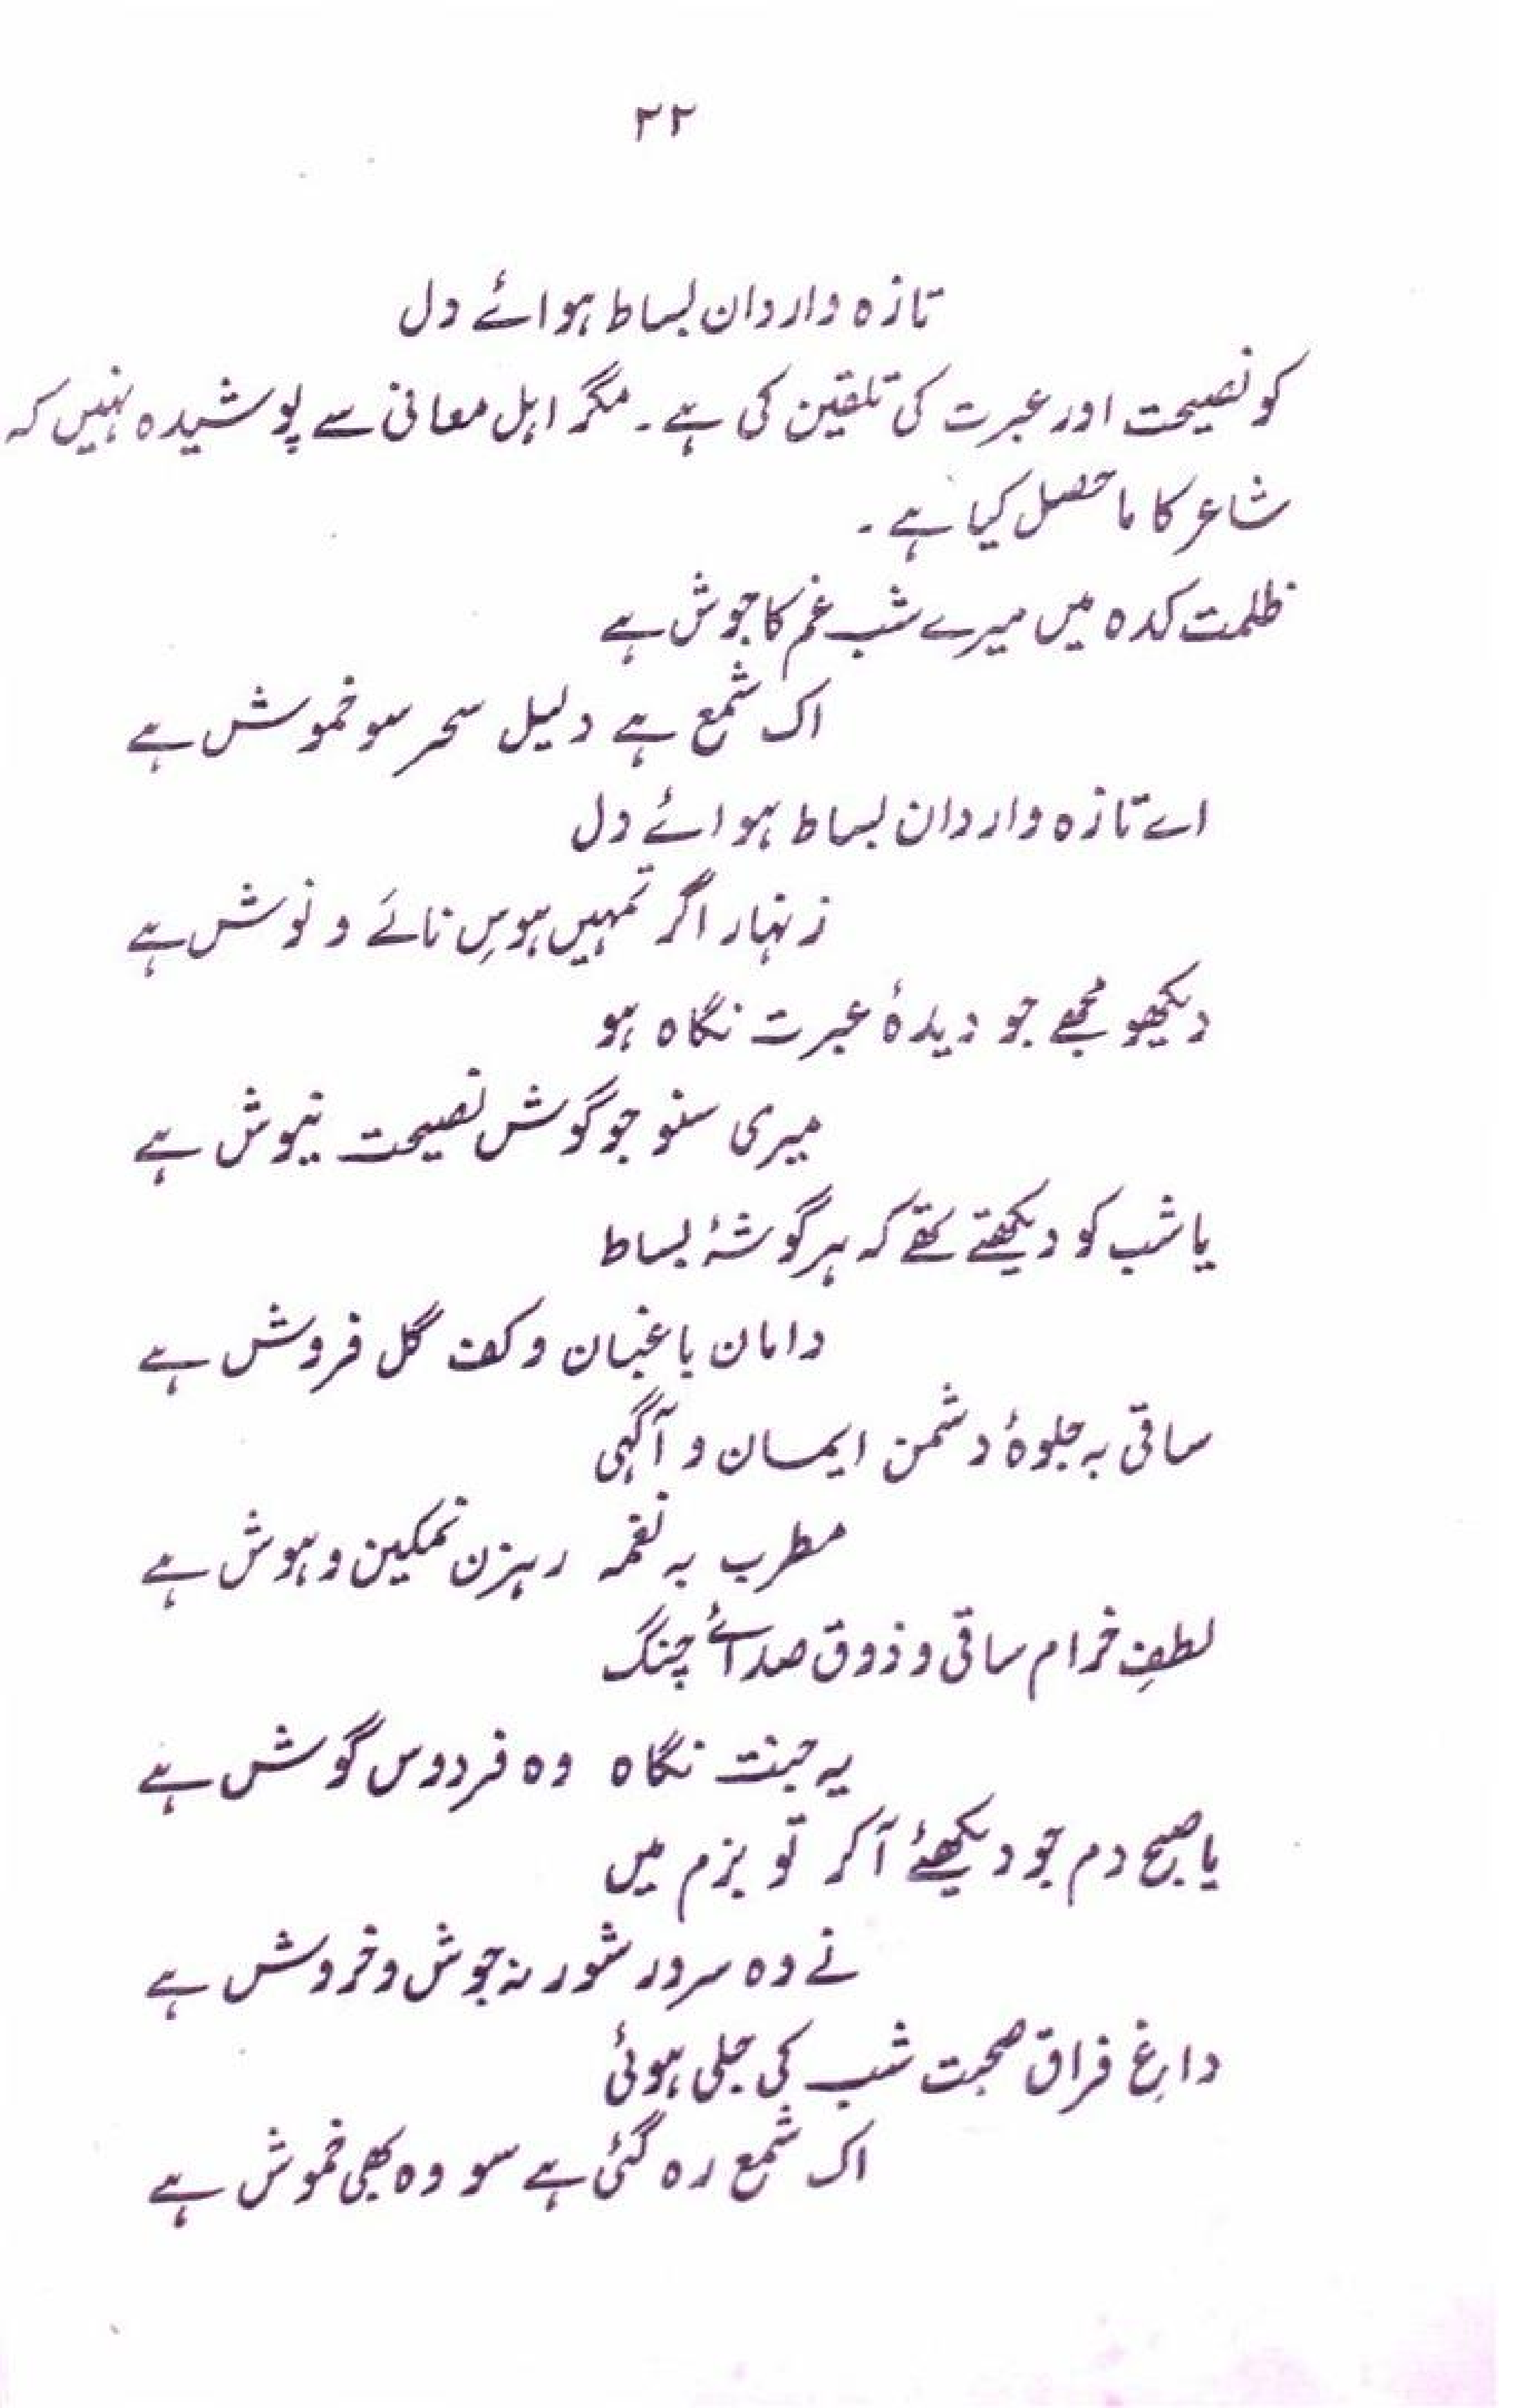 ۲۲
تازہ واردان بساط ہوائے دل
کو نصیحت اور عبرت کی تلقین کی ہے۔ مگر اہل معانی سے پوشیدہ نہیں کہ
شاعر کا ماحصل کیا ہے۔
ظلمت کدہ میں میرے شب غم کا جوش ہے
اک شمع ہے دلیل سحر سو خموش ہے
اے تازہ واردان بساط ہوائے دل
زنہار اگر تمہیں ہوسِ نائے و نوش ہے
دیکھو مجھے جو دیدۂ عبرت نگاہ ہو
میری سنو جو گوش نصیحت نیوش ہے
یا شب کو دیکھتے تھے کہ ہر گوشۂ بساط
دامان باغبان و کف گل فروش ہے
ساقی بہ جلوۂ دشمن ایمان و آگہی
مطرب بہ نغمہ رہزن تمکین و ہوش ہے
لطفِ خرام ساقی و ذوق صدائے چنگ
یہ جنت نگاہ وہ فردوس گوش ہے
یا صبح دم جو دیکھئے آکر تو بزم میں
نے وہ سرور شور نہ جوش و خروش ہے
داغِ فراق صحبت شب کی جلی ہوئی
اک شمع رہ گئی ہے سو وہ بھی خموش ہے